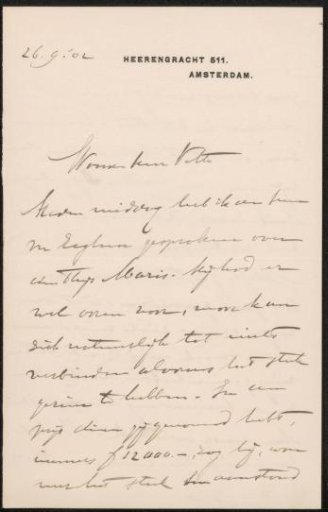 26.9.'02
HEERENGRACHT 511.
AMSTERDAM.
Waarde heer Vitta
middag heb ik den heer
van Eeghen gesproken over
Thijs Maris. Hij had er
wel ooren voor, maar kan
zich natuurlijk tot niets
verbinden alvorens het stuk
gezien te hebben. De
prijs dien gij genoemd hebt,
immers f 12000.–, zag hij, 
het stuk